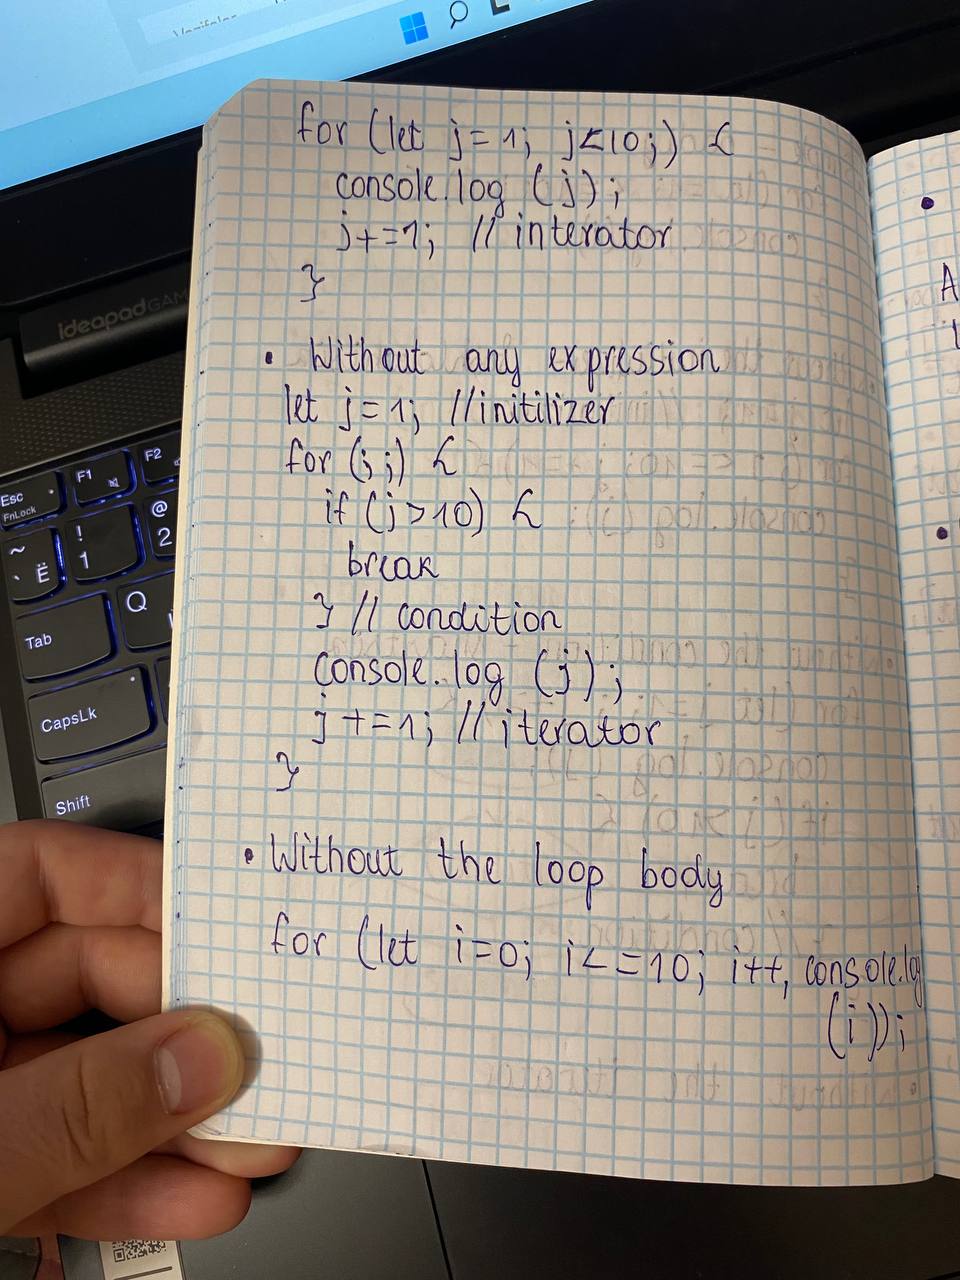 for (let j=1; j<10;) {
console.log (j);
j+=1; // interator
}
• Without any expression
let j=1; //initilizer
for (; ;) {
if (j>10) {
break
} // condition
console.log (j);
j +=1; // iterator
}
• Without the loop body
for (let i=0; i<=10; i++, console.log
(i));
ideapad GAM
Esc
FnLock
F1
F2
~
` Ё
!
1
@
2
Tab
Q
CapsLk
Shift